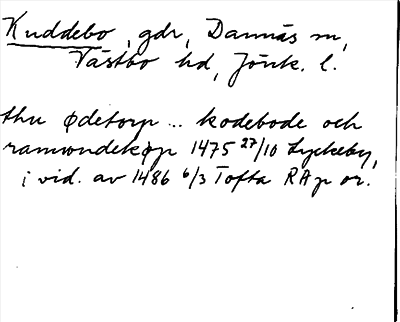 Kuddebo, gdr, Dannäs sn,
Västbo hd, Jönk. l.
thn ødetorp ... kodebode och
ramundekøp 1475 27/10 Lyckeby,
i vid. av 1486 6/3 Tofta RAp or.